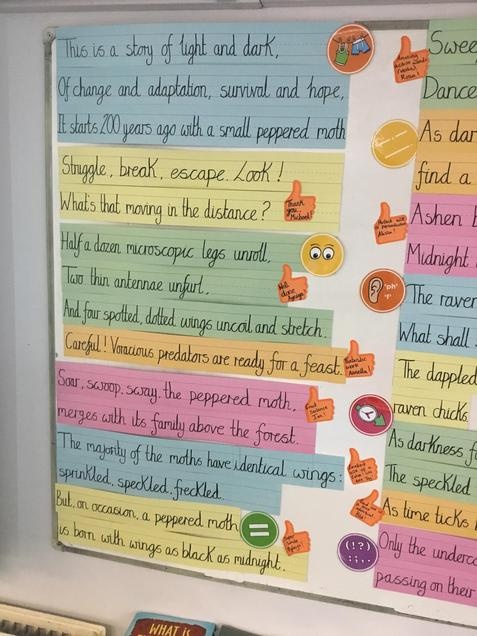 This is a story of light and dark,
Of change and adaptation, survival and hope,
It starts 200 years ago with a small peppered moth
Struggle, break, escape. Look!
What's that moving in the distance?
Thank you Michael!
Half a dozen microscopic legs unroll,
Two thin antennae unfurl,
Well done
And four spotted, dotted wings uncoil and stretch.
Careful! Voracious predators are ready for a feast.
Fantastic work
Soar, swoop, sway, the peppered moth,
merges with its family above the forest.
Great
The majority of the moths have identical wings:
sprinkled, speckled, freckled.
But, on occasion, a peppered moth
is born with wings as black as midnight.
=
Swee
Dance
As dar
find a
Ashen
Midnight
'ph'
'f'
The raven
What shall
The dappled
raven chicks
As darkness f
The speckled
As time ticks
(!?)
Only the underc
passing on their
WHAT IS